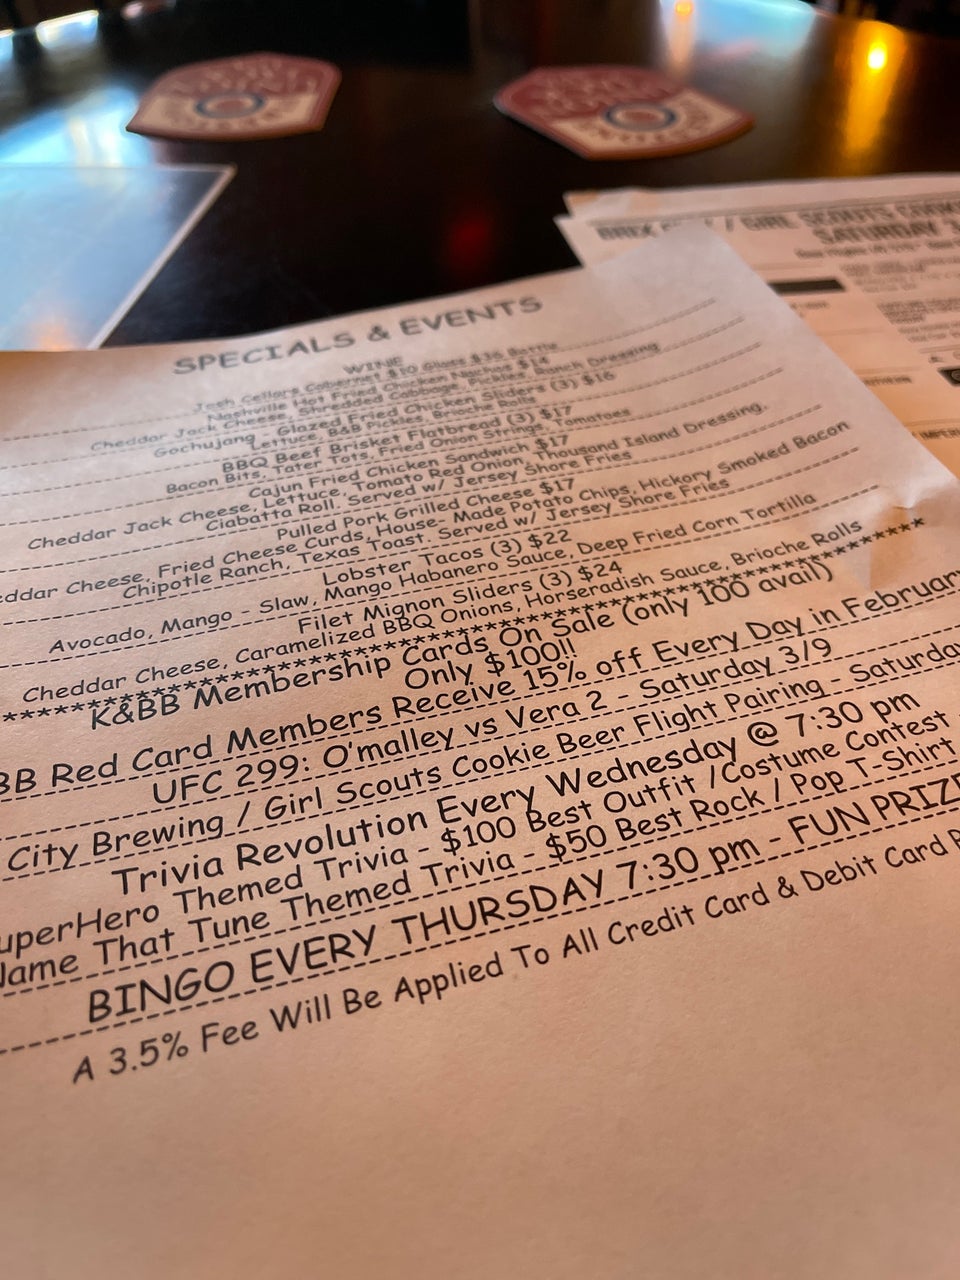 SPECIALS & EVENTS
WINE
Josh Cellars Cabernet $10 Glass $36 Bottle
Nashville Hot Fried Chicken Nachos $14
Cheddar Jack Cheese, Shredded Cabbage, Pickles, Ranch Dressing
Gochujang Glazed Fried Chicken Sliders (3) $16
Lettuce, B&B Pickles, Brioche Rolls
BBQ Beef Brisket Flatbread (3) $17
Bacon Bits, Tater Tots, Fried Onion Strings, Tomatoes
Cajun Fried Chicken Sandwich $17
Cheddar Jack Cheese, Lettuce, Tomato Red Onion, Thousand Island Dressing.
Ciabatta Roll. Served w/ Jersey Shore Fries
Pulled Pork Grilled Cheese $17
eddar Cheese, Fried Cheese Curds, House- Made Potato Chips, Hickory Smoked Bacon
Chipotle Ranch, Texas Toast. Served w/ Jersey Shore Fries
Lobster Tacos (3) $22
Avocado, Mango - Slaw, Mango Habanero Sauce, Deep Fried Corn Tortilla
Filet Mignon Sliders (3) $24
Cheddar Cheese, Caramelized BBQ Onions, Horseradish Sauce, Brioche Rolls
K&BB Membership Cards On Sale (only 100 avail)
Only $100!!
BB Red Card Members Receive 15% off Every Day in February
UFC 299: O'malley vs Vera 2 - Saturday 3/9
City Brewing / Girl Scouts Cookie Beer Flight Pairing - Saturday
Trivia Revolution Every Wednesday @ 7:30 pm
uperHero Themed Trivia - $100 Best Outfit /Costume Contest
Name That Tune Themed Trivia - $50 Best Rock / Pop T-Shirt
BINGO EVERY THURSDAY 7:30 pm - FUN PRIZE
A 3.5% Fee Will Be Applied To All Credit Card & Debit Card P
/ GIRL SCOUTS
SATURDAY